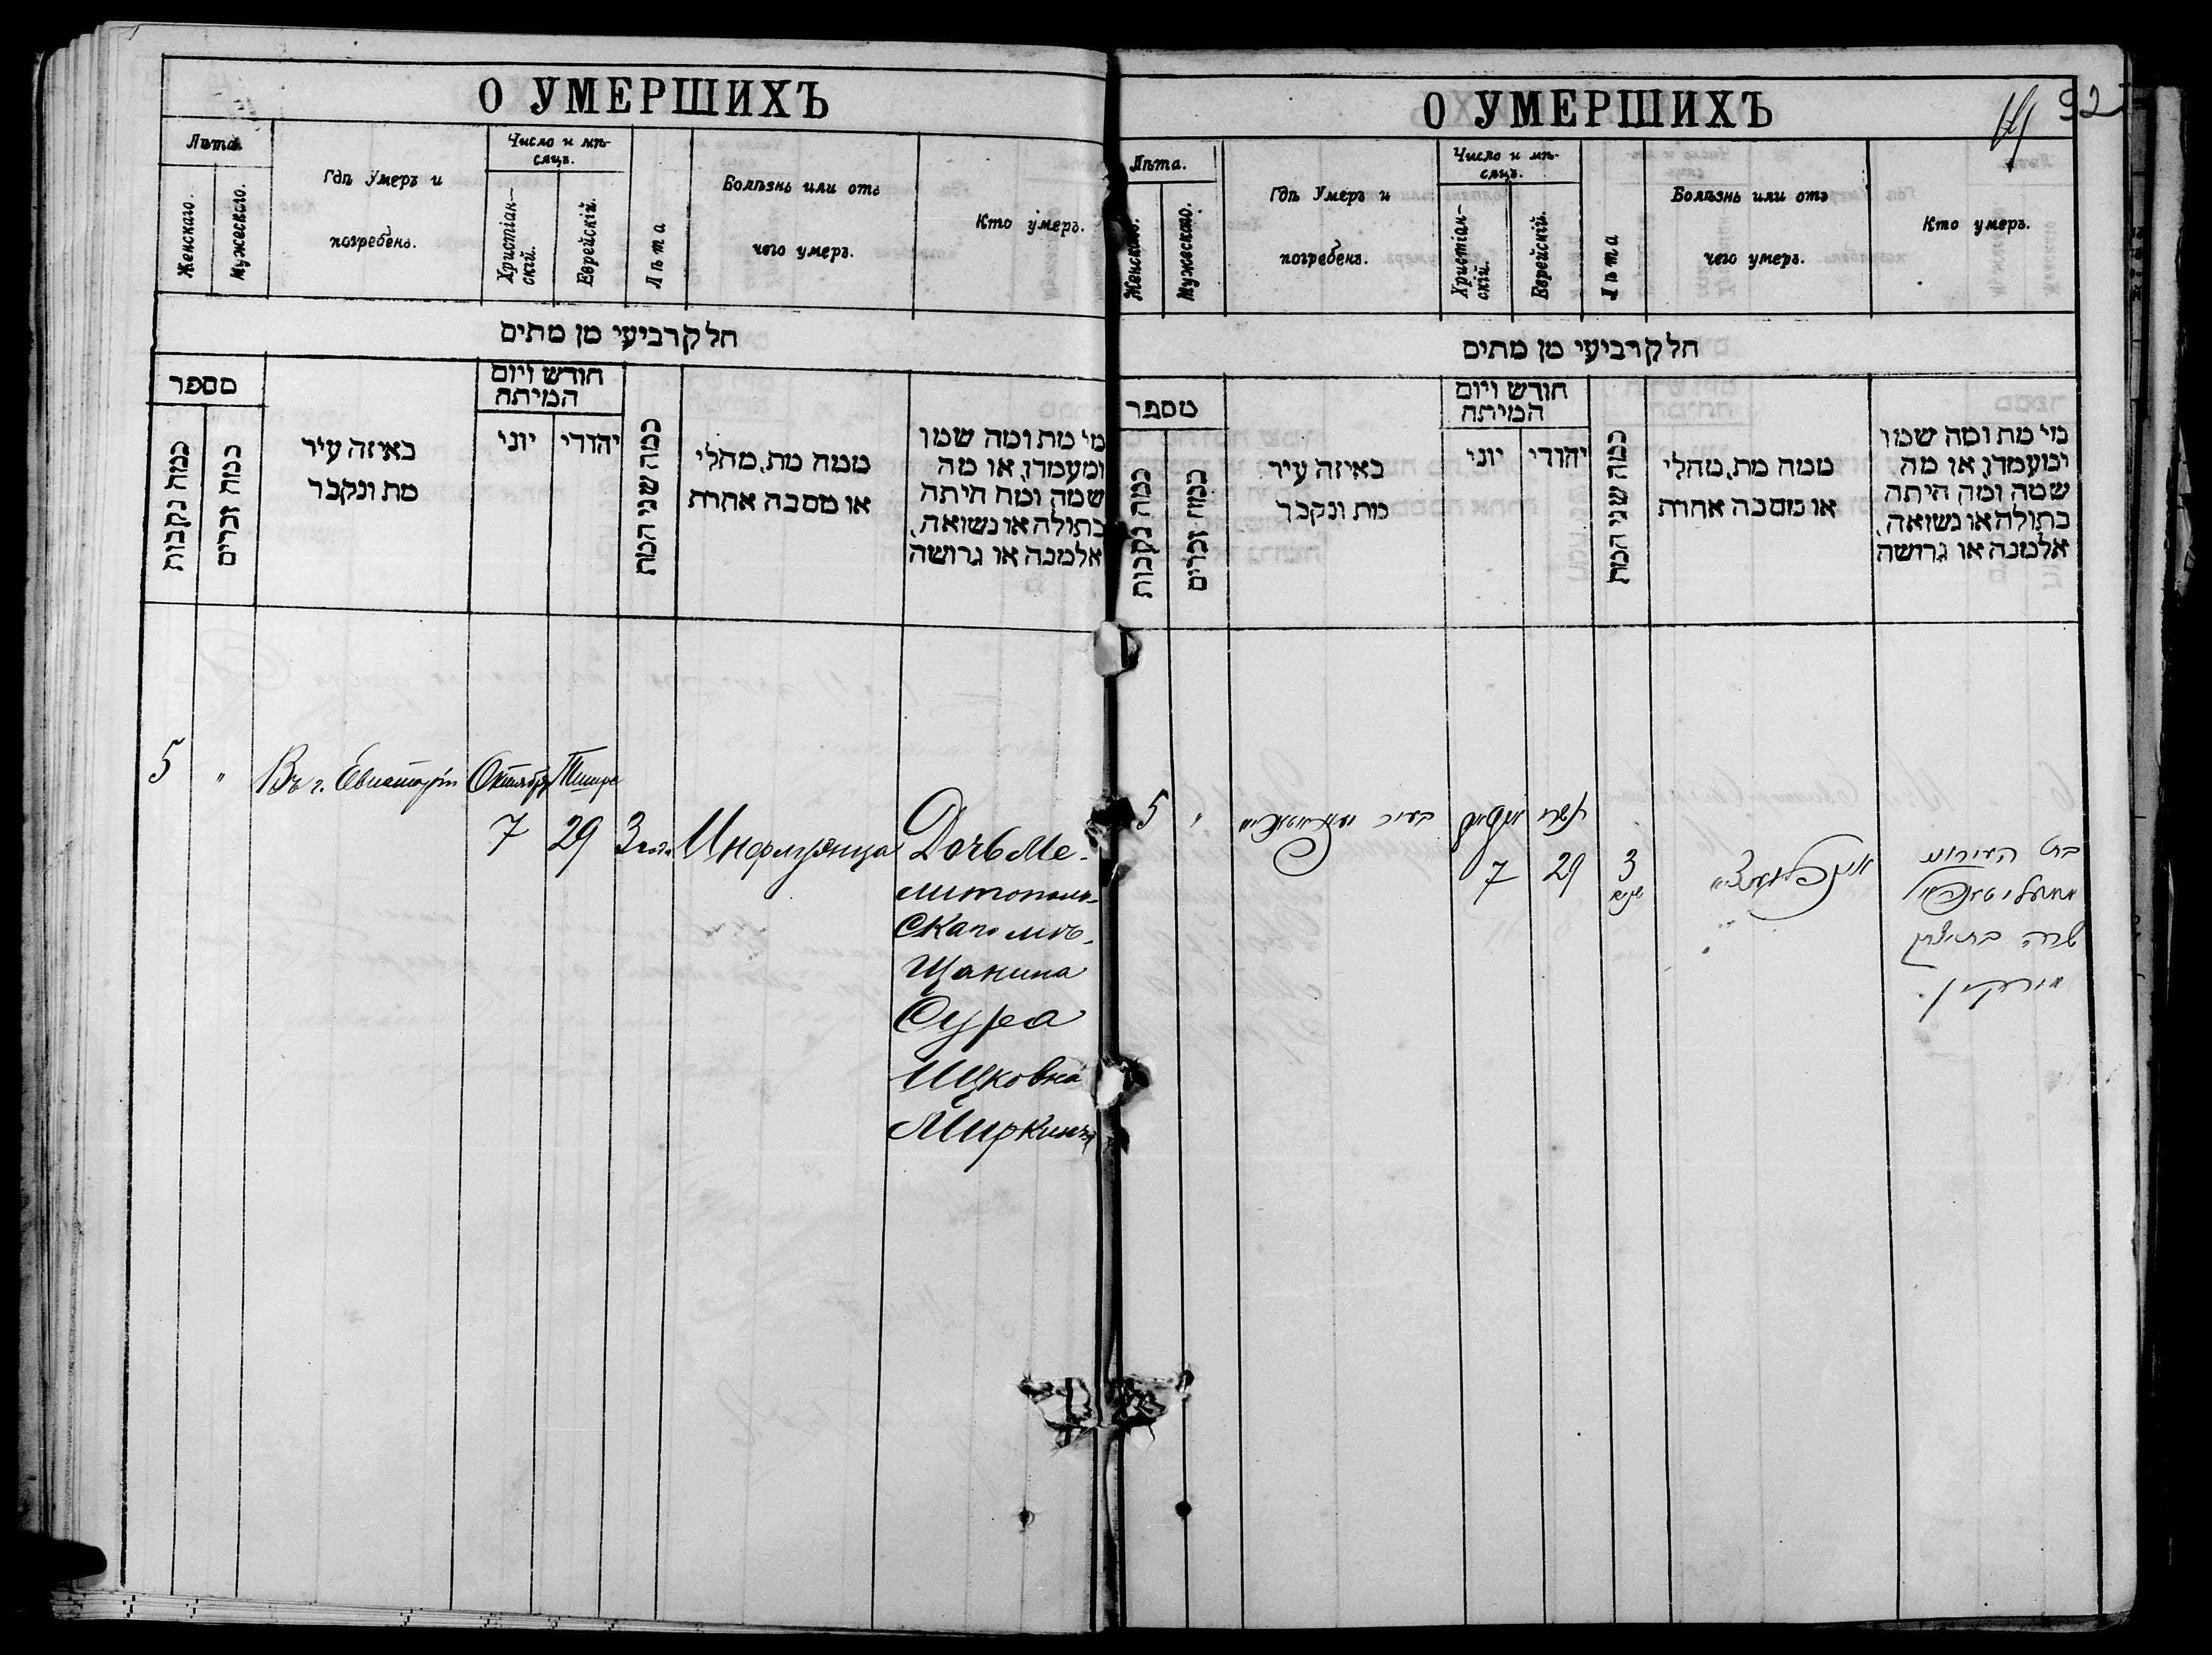 О УМЕРШИХЪ
Лѣта.
Женскаго.
Мужескаго.
Гдѣ Умеръ и
погребенъ.
Число и мѣ-
сяцъ.
Христіан-
скій.
Еврейскій.
Лѣта
Болѣзнь или отъ
чего умеръ.
Кто умеръ.
חלק רביעי מן מתים
מספר
כמה נקבות
כמה זכרים
באיזה עיר
מת ונקבר
חודש ויום
המיתה
יוני
יהודי
כמה שני המת
ממה מת, מחלי
או מסבה אחרת
מי מת ומה שמו
ומעמדו, או מה
שמה ומה היתה
בתולה או נשואה,
אלמנה או גרושה
5 " Въ г. Евпаторіи Октября Тишре
7 29 3 года Инфлуэнца Дочь Ме-
литополь-
скаго мѣ-
щанина
Сура
Ицковна
Миркина
О УМЕРШИХЪ
92
Лѣта.
Женскаго.
Мужескаго.
Гдѣ Умеръ и
погребенъ.
Число и мѣ-
сяцъ.
Христіан-
скій.
Еврейскій.
Лѣта
Болѣзнь или отъ
чего умеръ.
Кто умеръ.
חלק רביעי מן מתים
מספר
כמה נקבות
כמה זכרים
באיזה עיר
מת ונקבר
חודש ויום
המיתה
יוני
יהודי
כמה שני המת
ממה מת, מחלי
או מסבה אחרת
מי מת ומה שמו
ומעמדו, או מה
שמה ומה היתה
בתולה או נשואה,
אלמנה או גרושה
5 " בעיר תשרי
7 29 3 שנים
בת העירוני
שרה בת יצחק
מירקין